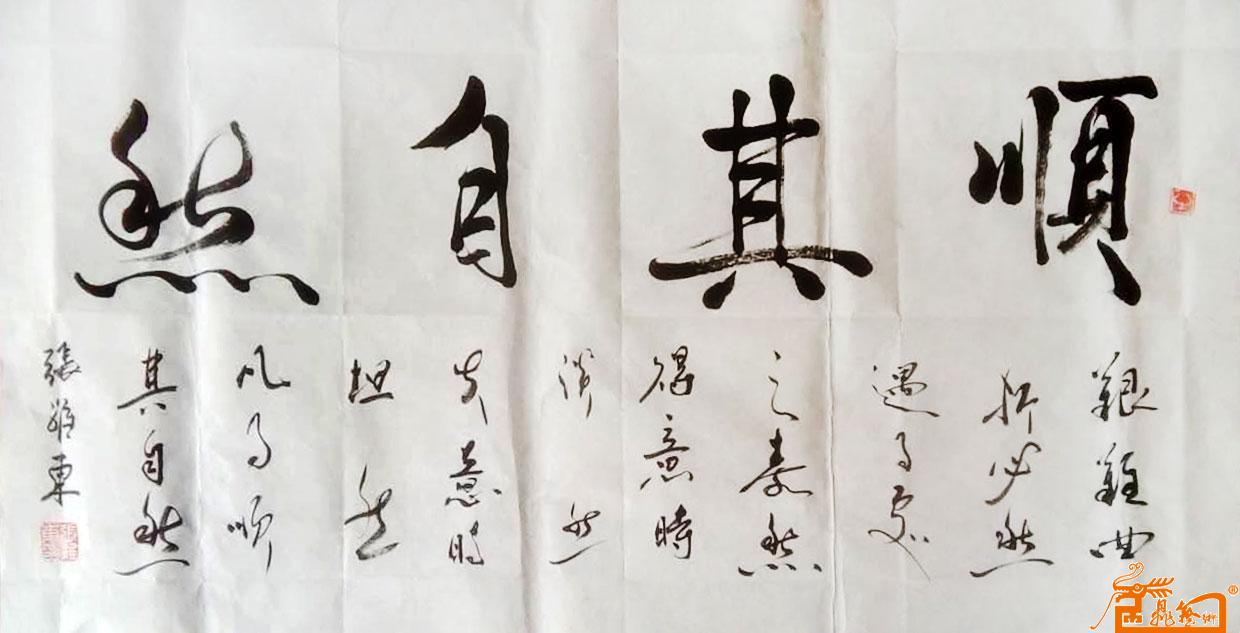 順其自然
艱難曲
折必然
遇事處
之泰然
得意時
淡然
失意時
坦然
凡事順
其自然
張東